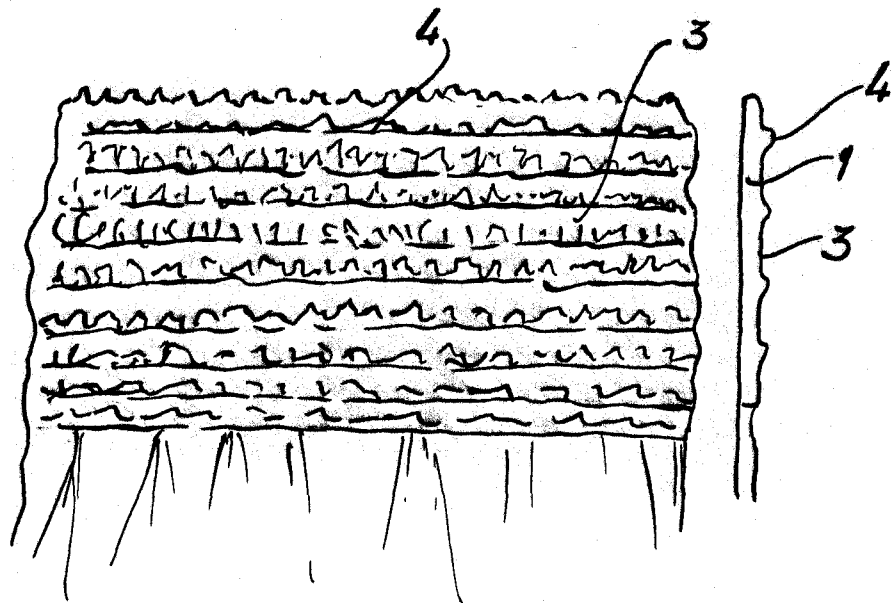 4
3
4
1
3